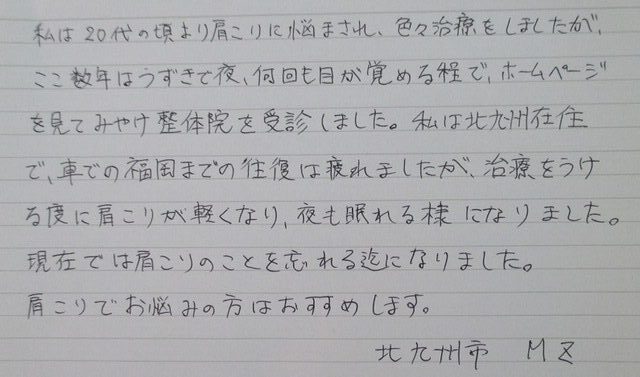 私は20代の頃より肩こりに悩まされ、色々治療をしましたが、
ここ数年はうずきで夜、何回も目が覚める程で、ホームページ
を見てみやけ整体院を受診しました。私は北九州在住
で、車での福岡までの往復は疲れましたが、治療をうけ
る度に肩こりが軽くなり、夜も眠れる様になりました。
現在では肩こりのことを忘れる迄になりました。
肩こりでお悩みの方はおすすめします。
北九州市 M Z